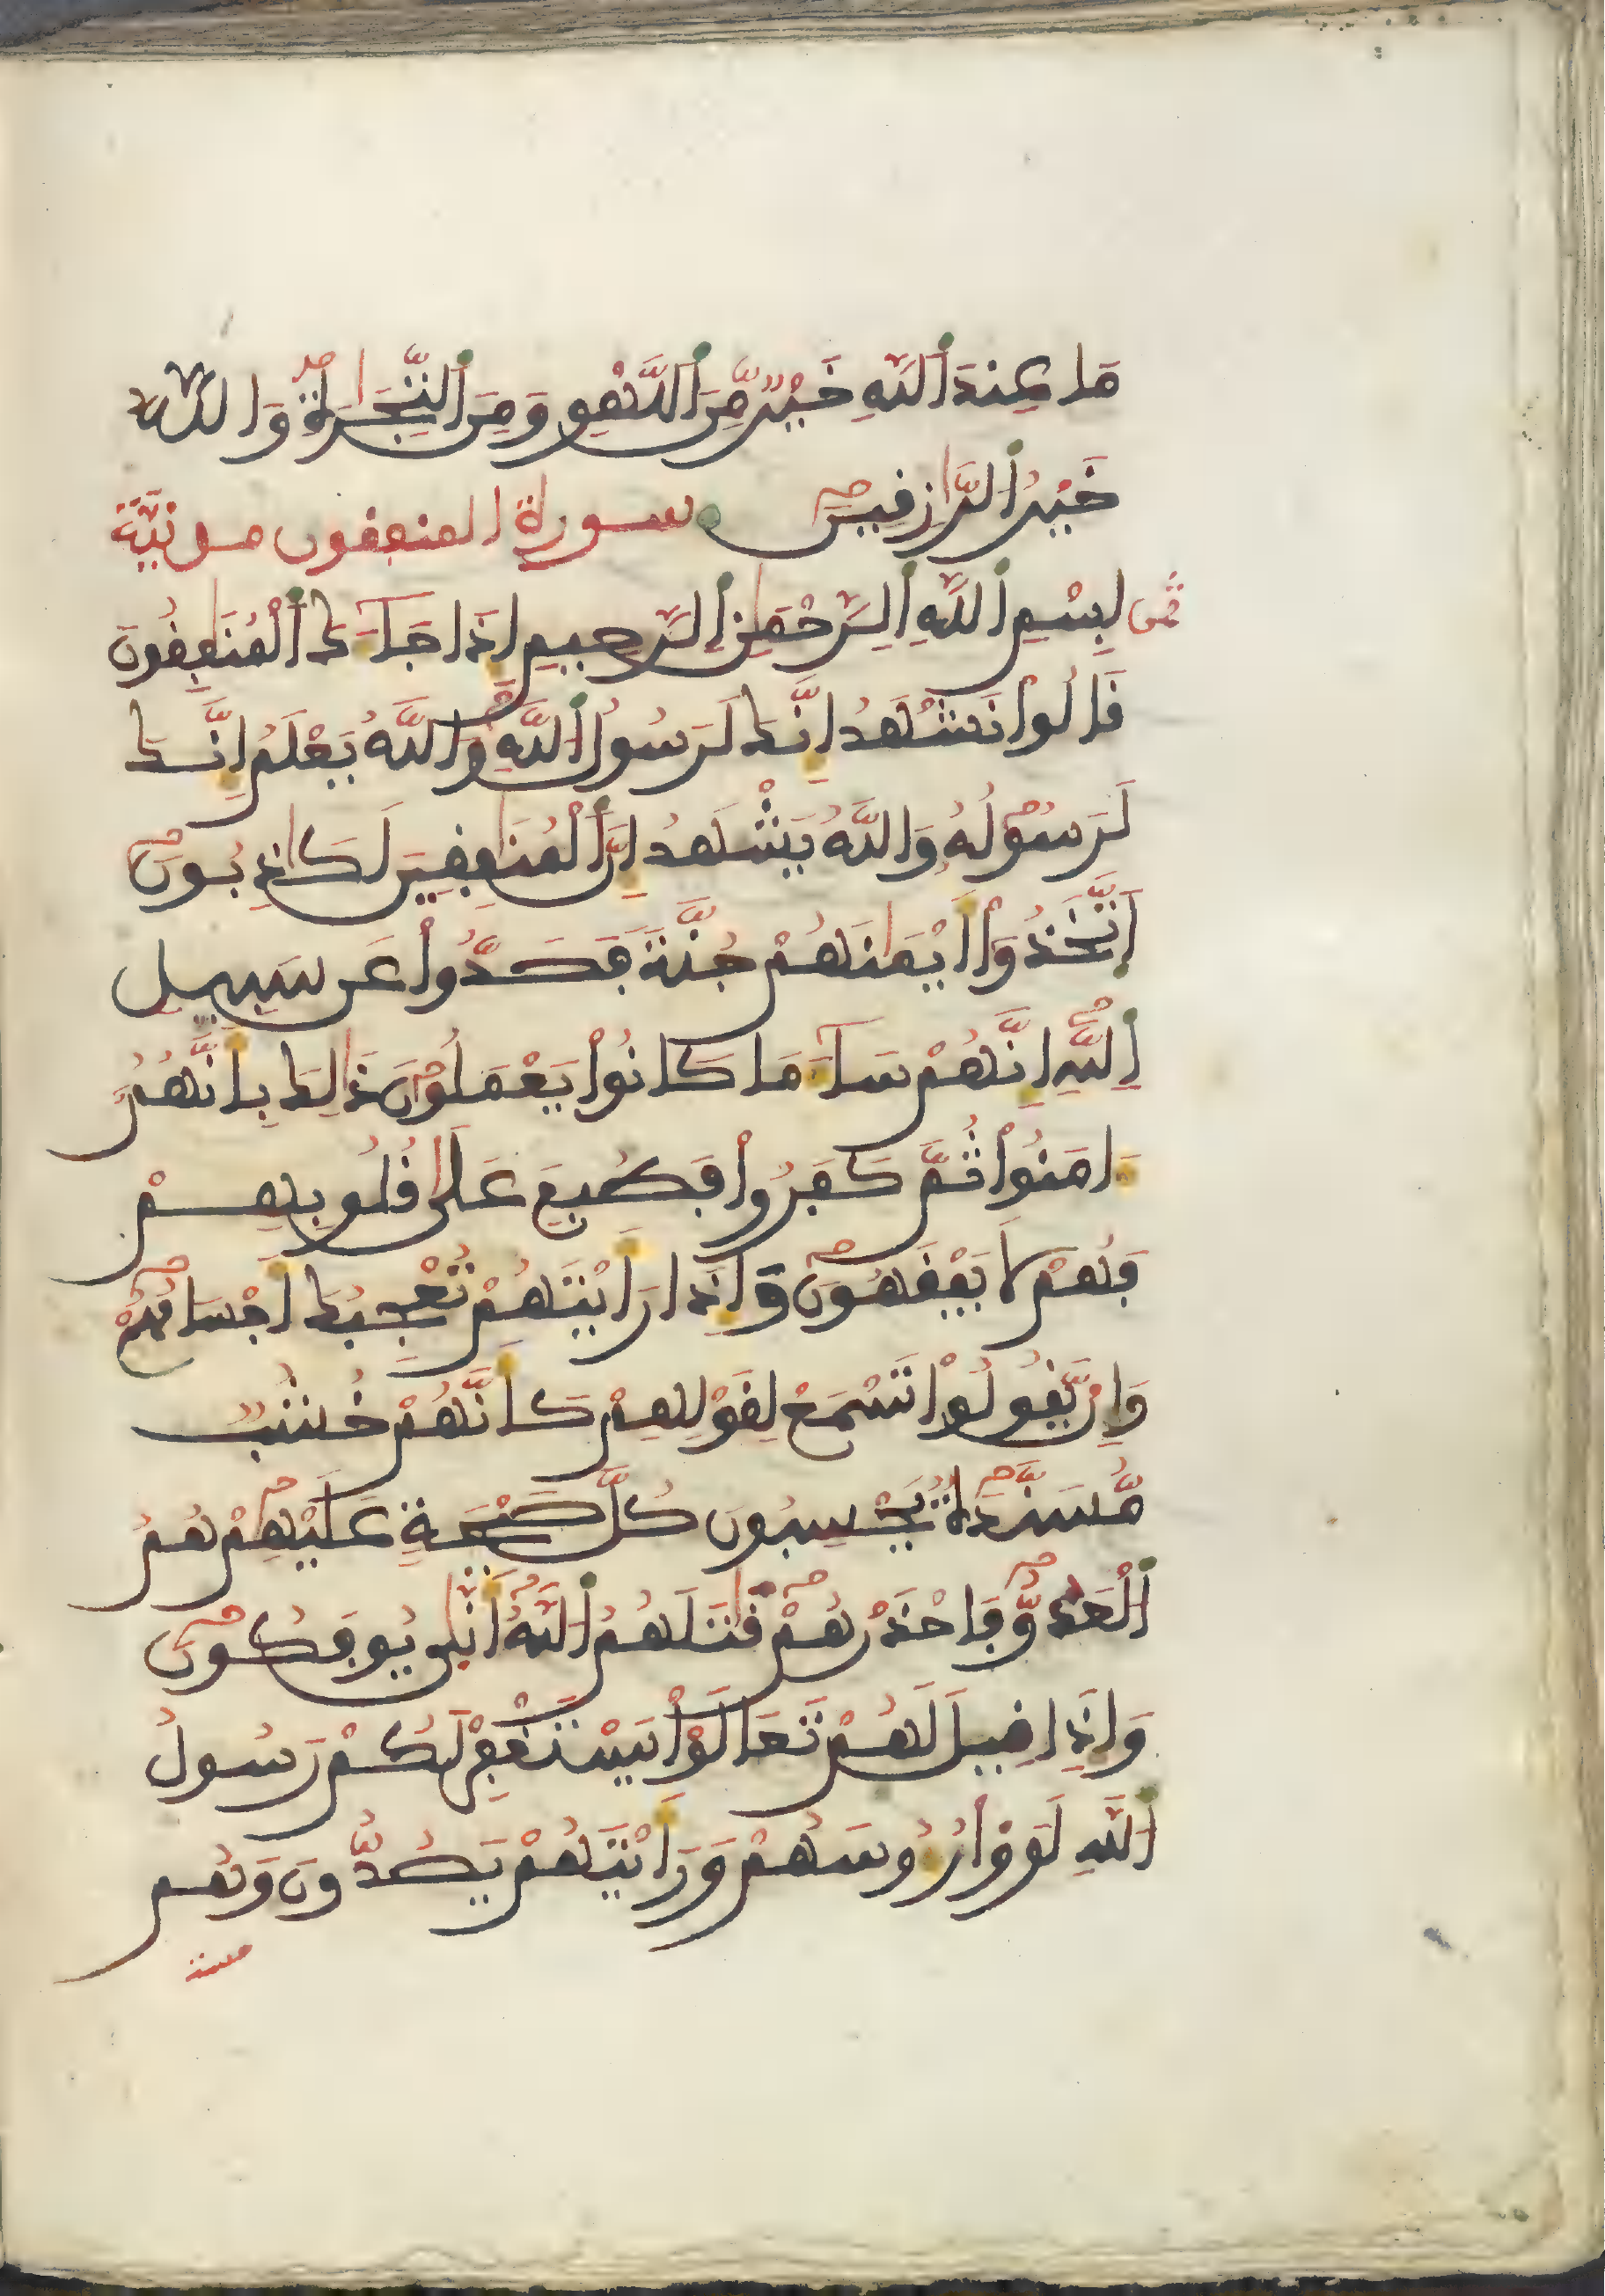 مَا عِندَ اَللَّهِ خَيْرٌ مِّنَ اَللَّهْوِ وَمِنَ اَلتِّجَٰرَةِ وَاللَّهُ
خَيْرُ اَلرَّٰزِقِينَ سورة المنٰفقون مدنيّة
بِسْمِ اِللَّهِ اِلرَّحْمَٰنِ اِلرَّحِيمِ إِذَا جَآءَكَ اَلْمُنَٰفِقُونَ
قَالُواْ نَشْهَدُ إِنَّكَ لَرَسُولُ اُللَّهِ وَاللَّهُ يَعْلَمُ إِنَّكَ
لَرَسُولُهُ وَاللَّهُ يَشْهَدُ إِنَّ اَلْمُنَٰفِقِينَ لَكَٰذِبُونَ
اَتَّخَذُواْ أَيْمَٰنَهُمْ جُنَّةً فَصَدُّواْ عَن سَبِيلِ
اِللَّهِ إِنَّهُمْ سَآءَ مَا كَانُواْ يَعْمَلُونَ ذَٰلِكَ بِأَنَّهُمُ
ءَامَنُواْ ثُمَّ كَفَرُواْ فَطُبِعَ عَلَىٰ قُلُوبِهِمْ
فَهُمْ لَا يَفْقَهُونَ وَإِذَا رَأَيْتَهُمْ تُعْجِبُكَ أَجْسَامُهُمْ
وَإِنْ يَّقُولُواْ تَسْمَعْ لِقَوْلِهِمْ كَأَنَّهُمْ خُشُبٌ
مُّسَنَّدَةٌ يَحْسِبُونَ كُلَّ صَيْحَةٍ عَلَيْهِمْ هُمُ
اُلْعَدُوُّ فَاحْذَرْهُمْ قَٰتَلَهُمُ اُللَّهُ أَنَّىٰ يُوفَكُونَ
وَإِذَا قِيلَ لَهُمْ تَعَالَوْاْ يَسْتَغْفِرْ لَكُمْ رَسُولُ
اُللَّهِ لَوَوْاْ رُءُوسَهُمْ وَرَأَيْتَهُمْ يَصُدُّونَ وَهُم